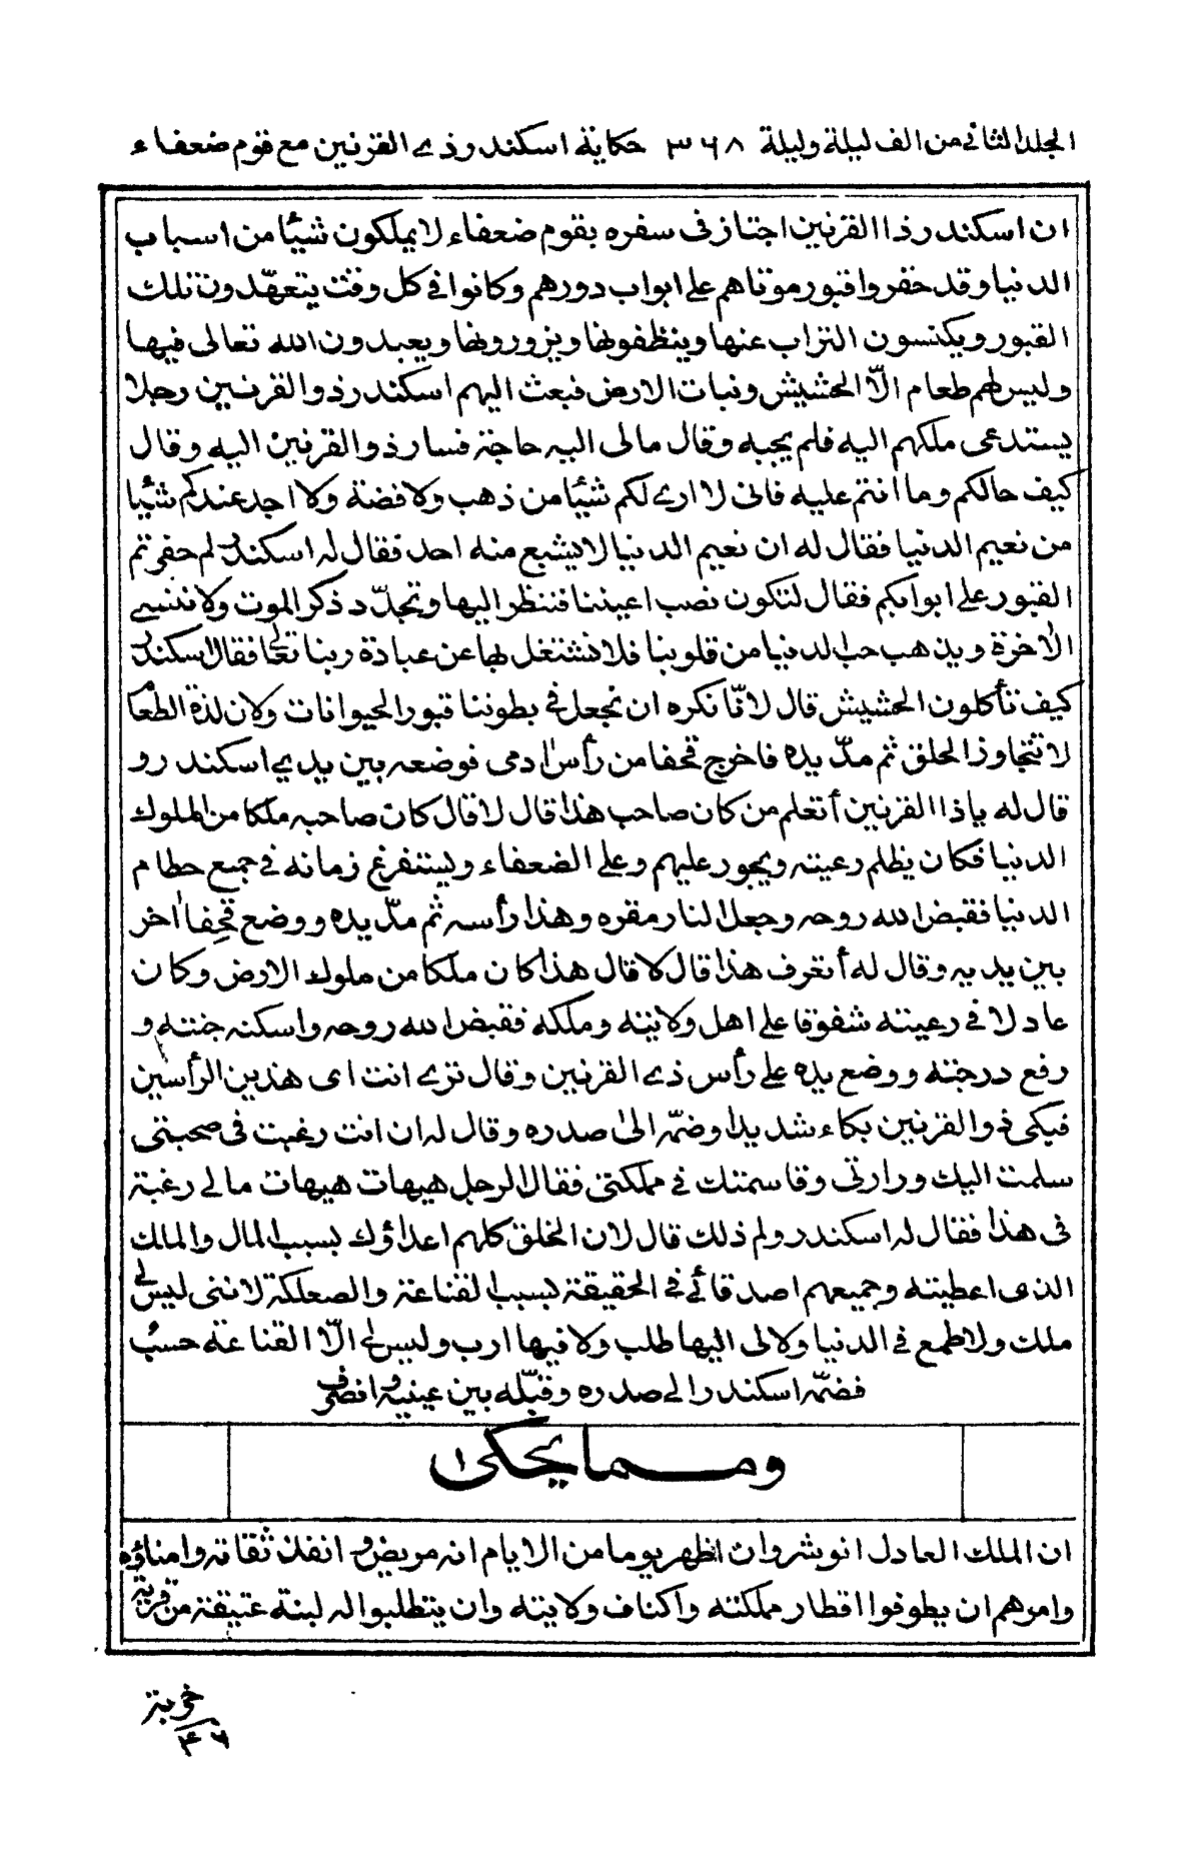 الجلد الثانى من الف ليلة وليلة ٣٦٨ حكاية اسكندر ذى القرنين مع قوم ضعفاء
ان اسكندر ذا القرنين اجتاز فى سفره بقوم ضعفاء لا يملكون شيًا من اسباب
الدنيا وقد حفروا قبور موتاهم على ابواب دورهم وكانوا فى كل وقت يتعهّدون تلك
القبور ويكنسون التراب عنها وينظفونها ويزورونها ويعبدون الله تعالى فيها
وليس لهم طعام الّا الحشيش ونبات الارض فبعث اليهم اسكندر ذو القرنين رجلا
يستدعى ملكهم اليه فلم يجبه وقال مالى اليه حاجة فسار ذو القرنين اليه وقال
كيف حالكم وما انتم عليه فانى لا ارى لكم شيًا من ذهب ولا فضة ولا اجد عندكم شيًا
من نعيم الدنيا فقال له ان نعيم الدنيا لا يشبع منه احد فقال له اسكندر لم حفرتم
القبور على ابوابكم فقال لتكون نصب اعيننا فننظر اليها ونجدّد ذكر الموت ولا ننسى
الاخرة ويذهب حب الدنيا من قلوبنا فلا نشتغل بها عن عبادة ربنا تعالى فقال اسكندر
كيف تأكلون الحشيش قال لانّا نكره ان نجعل فى بطوننا قبور الحيوانات ولان لذة الطعام
لا تتجاوز الحلق ثم مدّ يده فاخرج قحفا من رأس ادمى فوضعه بين يدى اسكندر و
قال له ياذا القرنين أتعلم من كان صاحب هذا قال لا قال كان صاحبه ملكا من الملوك
الدنيا فكان يظلم رعيته ويجور عليهم وعلى الضعفاء ويستفرغ زمانه فى جمع حطام
الدنيا فقبض الله روحه وجعل النار مقره وهذا رأسه ثم مدّ يده ووضع قحفا اخر
بين يديه وقال له أتعرف هذا قال لا قال هذا كان ملكا من ملوك الارض وكان
عادلا فى رعيته شفوقا على اهل ولايته وملكه فقبض الله روحه واسكنه جنته و
رفع درجته ووضع يده على رأس ذى القرنين وقال ترى انت اى هذين الرأسين
فبكى ذو القرنين بكاء شديدا وضمّه الى صدره وقال له ان انت رغبت فى صحبتى
سلمت اليك وزارتى وقاسمتك فى مملكتى فقال الرجل هيهات هيهات مالى رغبة
فى هذا فقال له اسكندر ولم ذلك قال لان الخلق كلهم اعداؤك بسبب المال والملك
الذى اعطيته وجميعهم اصدقائى فى الحقيقة بسبب القناعة والصعلكة لاننى ليس لى
ملك ولا طمع فى الدنيا ولا لى اليها طلب ولا فيها ارب وليس لى الّا القناعة حسب
فضمّه اسكندر الى صدره وقبّله بين عينيه وانصرف
ومما يحكى
ان الملك العادل انوشروان اظهر يوما من الايام انه مريض وانفذ ثقاته وامناؤه
وامرهم ان يطوفوا اقطار مملكته واكناف ولايته وان يتطلبوا له لبنة عتيقة من قرية
خربة
٤٦